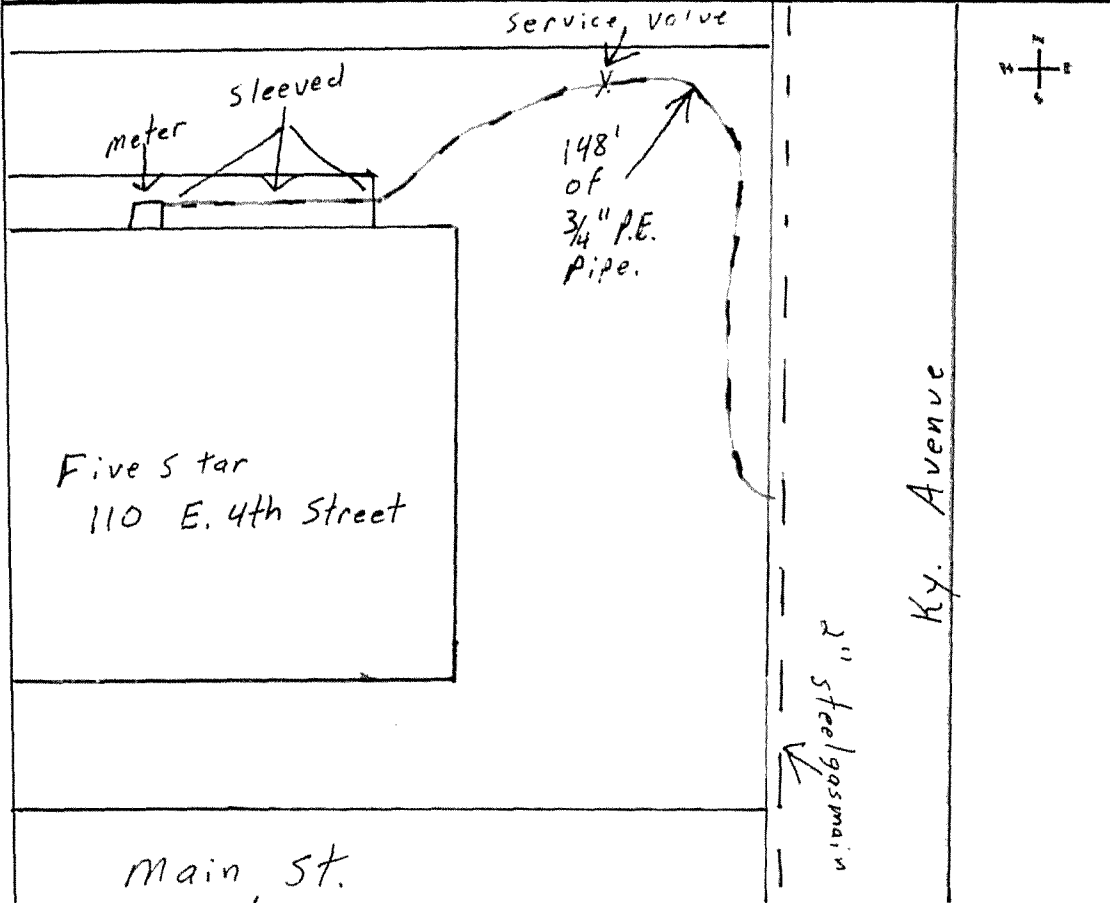 service valve
sleeved
meter
148'
of
3/4" P.E.
Pipe.
N
W E
S
Five Star
110 E. 4th Street
Ky. Avenue
2" steel gasmain
Main St.